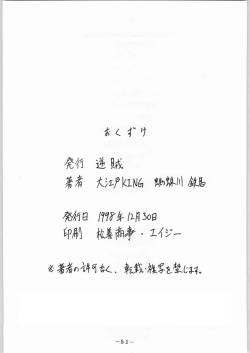 おくずけ
発行 逆賊
著者 大江戸KING 蜷川 銀馬
発行日 1998年12月30日
印刷 松善商事・エイジー
※著者の許可なく、転載・複写を禁じます。
-51-